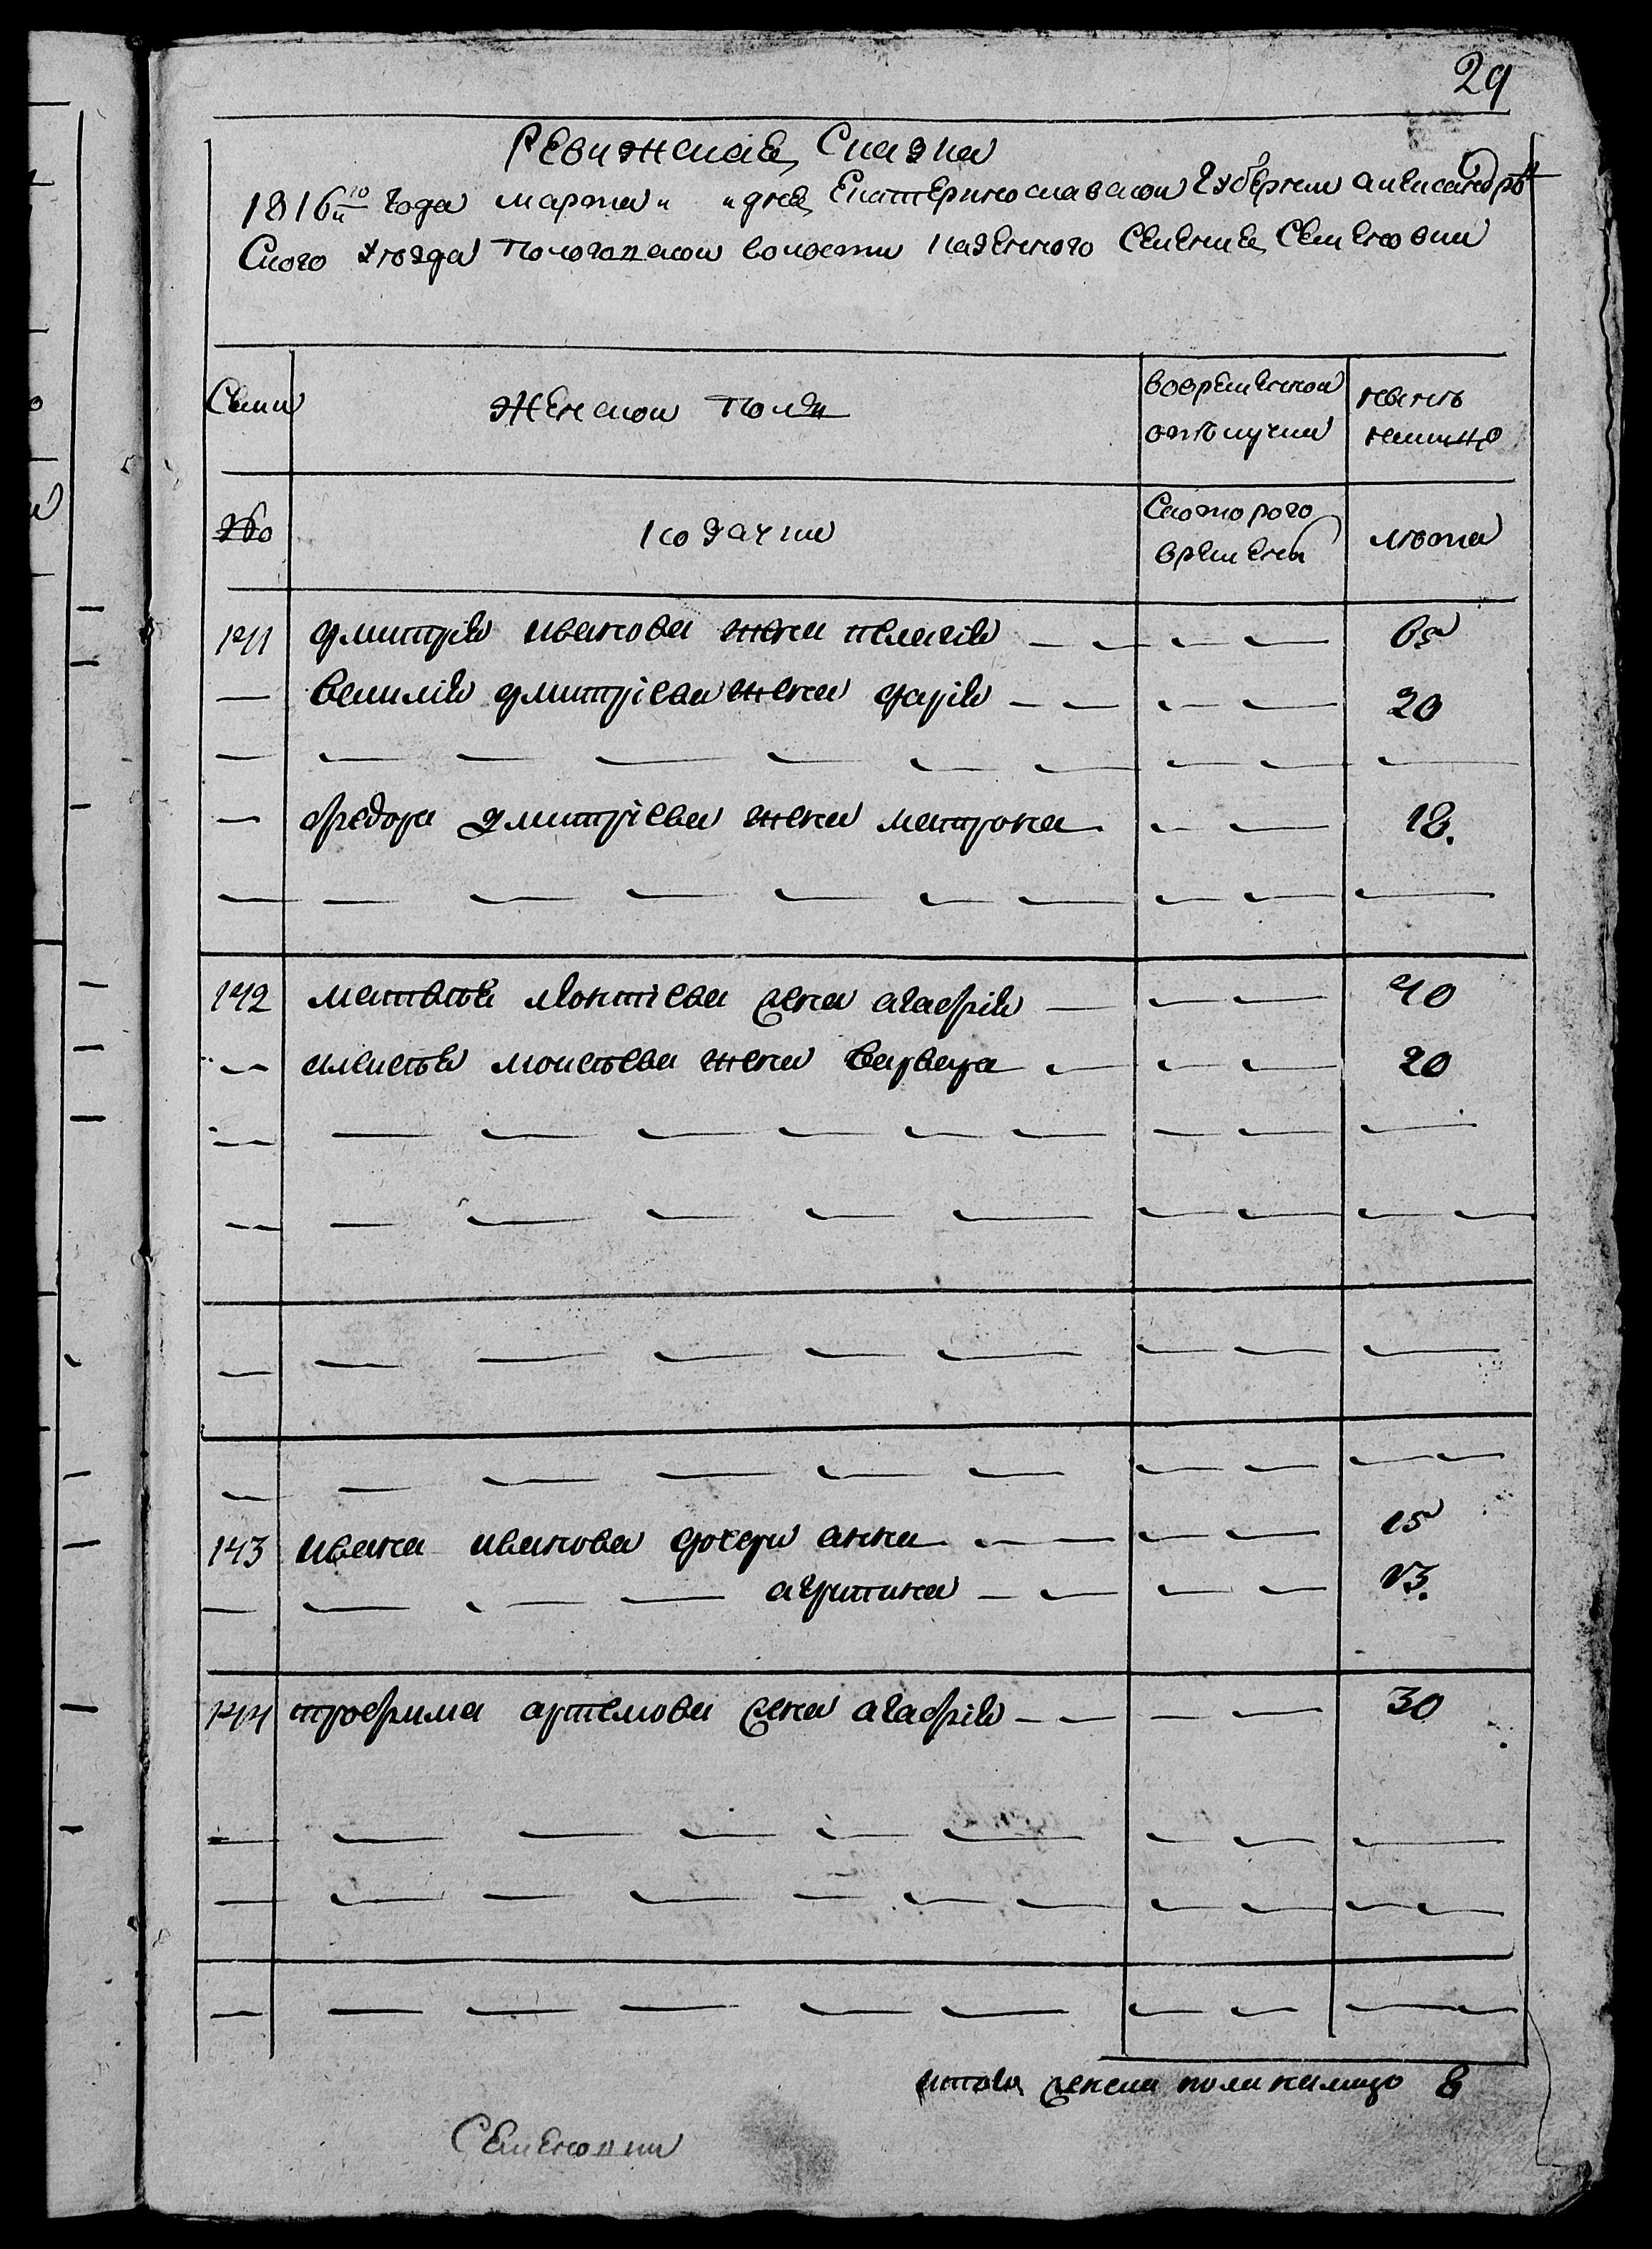 29
Ревижская Сказка
1816го года марта " " дня Екатеринославской Губернии Александров
ского уезда Пологоцкой волости казенного Селения Семеновки
Семи
Женской пол
во временной
отлучки
ныне
налицо
козачки
Скоторого
времени
лета
141 дмитрия иванова жена пелагия — — — — 65
— василия дмитриева жена дария — — — — 20
— — — — — — — — — —
— федора дмитриева жена матрона — — 18.
— — — — — — — — — —
142 матвея леонтиева жена агафия — — — 40
— алексея моисеева жена варвара — — — 20
— — — — — — — — — —
— — — — — — — — — —
— — — — — — — — —
— — — — — — — — — —
143 ивана иванова дочери анна — — — — 15
— — — — агрипина — — — — 13.
144 трофима артемова жена агафия — — — — 30
— — — — — — — — —
— — — — — — — — — — —
— — — — — — — — —
итого женска пола налицо 8
Семеновки